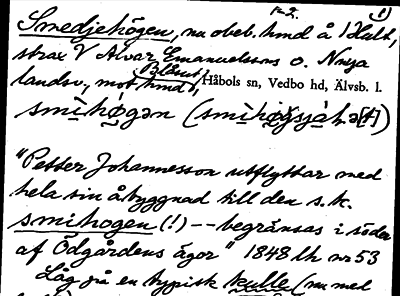 12. 1)
Smedjehögen, nu obeb. hmd å 1 Halt,
strax V Alvar Emanuelssons o. Nya
Blåsut,
landsv., mot hmd, Håbols sn, Vedbo hd, Älvsb. l.
smìhǿgən
"Petter Johannesson utflyttar med
hela sin åbyggnad till den s.k.
smihogen (!) -- begränsas i söder
af Ödgårdens ägor" 1848 lh nr 53
Låg på en typisk kulle (nu med